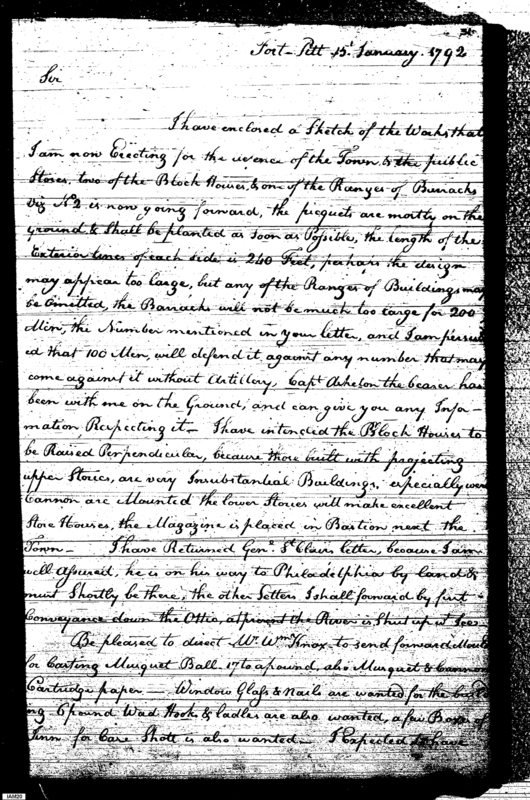 31
Fort-Pitt 15t January. 1792
Sir
I have enclosed a Sketch of the Works that
I am now Erecting for the defence of the Town & the public
Stores. two of the Block Houses, & one of the Ranges of Barracks
viz No. 2 is now going forward, the picquets are mostly on the
ground & Shall be planted as soon as Possible, the length of the
Exterior lines of each side is 240 Feet, perhaps the design
may appear too large, but any of the Ranges of Buildings may
be Omitted, the Barracks will not be much too large for 200
Men, the Number mentioned in your letter, and I am persuad
ed that 100 Men, will defend it against any number that may
come against it without Artillery, Capt Asheton the bearer has
been with me on the Ground, and can give you any Infor-
mation, Respecting it - I have intended the Block Houses to
be Raised Perpendicular, because those built with projecting
upper Stories, are very Insubstantial Buildings, especially were
Cannon are Mounted the lower Stories will make excellent
Store Houses, the Magazine is placed in Bastion next the
Town - I have Returned Genl. St Clairs letter, because I am
well Assured, he is on his way to Philadelphia by land &
must Shortly be there, the other Letters I shall forward by first
Conveyance down the Ohio, at present the River is Shut up wt Ice
Be pleased to direct Mr. Wm Knox to send forward Moulds
for Casting Musquet Ball 17 to a pound, also Musquet & Cannon
Cartridge paper - Window Glass & Nails are wanted for the build
ing 6 pound Wad Hooks & ladles are also wanted, a few Boxes of
Tinn for Case Shott is also wanted - I Expected to have
IAM20